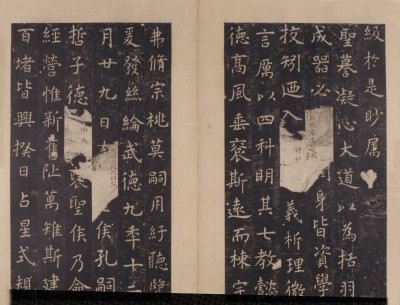 級於是眇屬
聖謩凝心大道以為括羽
成器必潤身皆資學
校矧迺入義析理微
言厲以四科明其七教懿
德高風垂裕斯遠而棟宇
弗脩宗祧莫嗣用紓聽覽
爰發絲綸武德九年十二
月廿九日侯孔嗣
哲子德襃聖侯乃命
經營惟新舊阯萬雉斯建
百堵皆興揆日占星式規